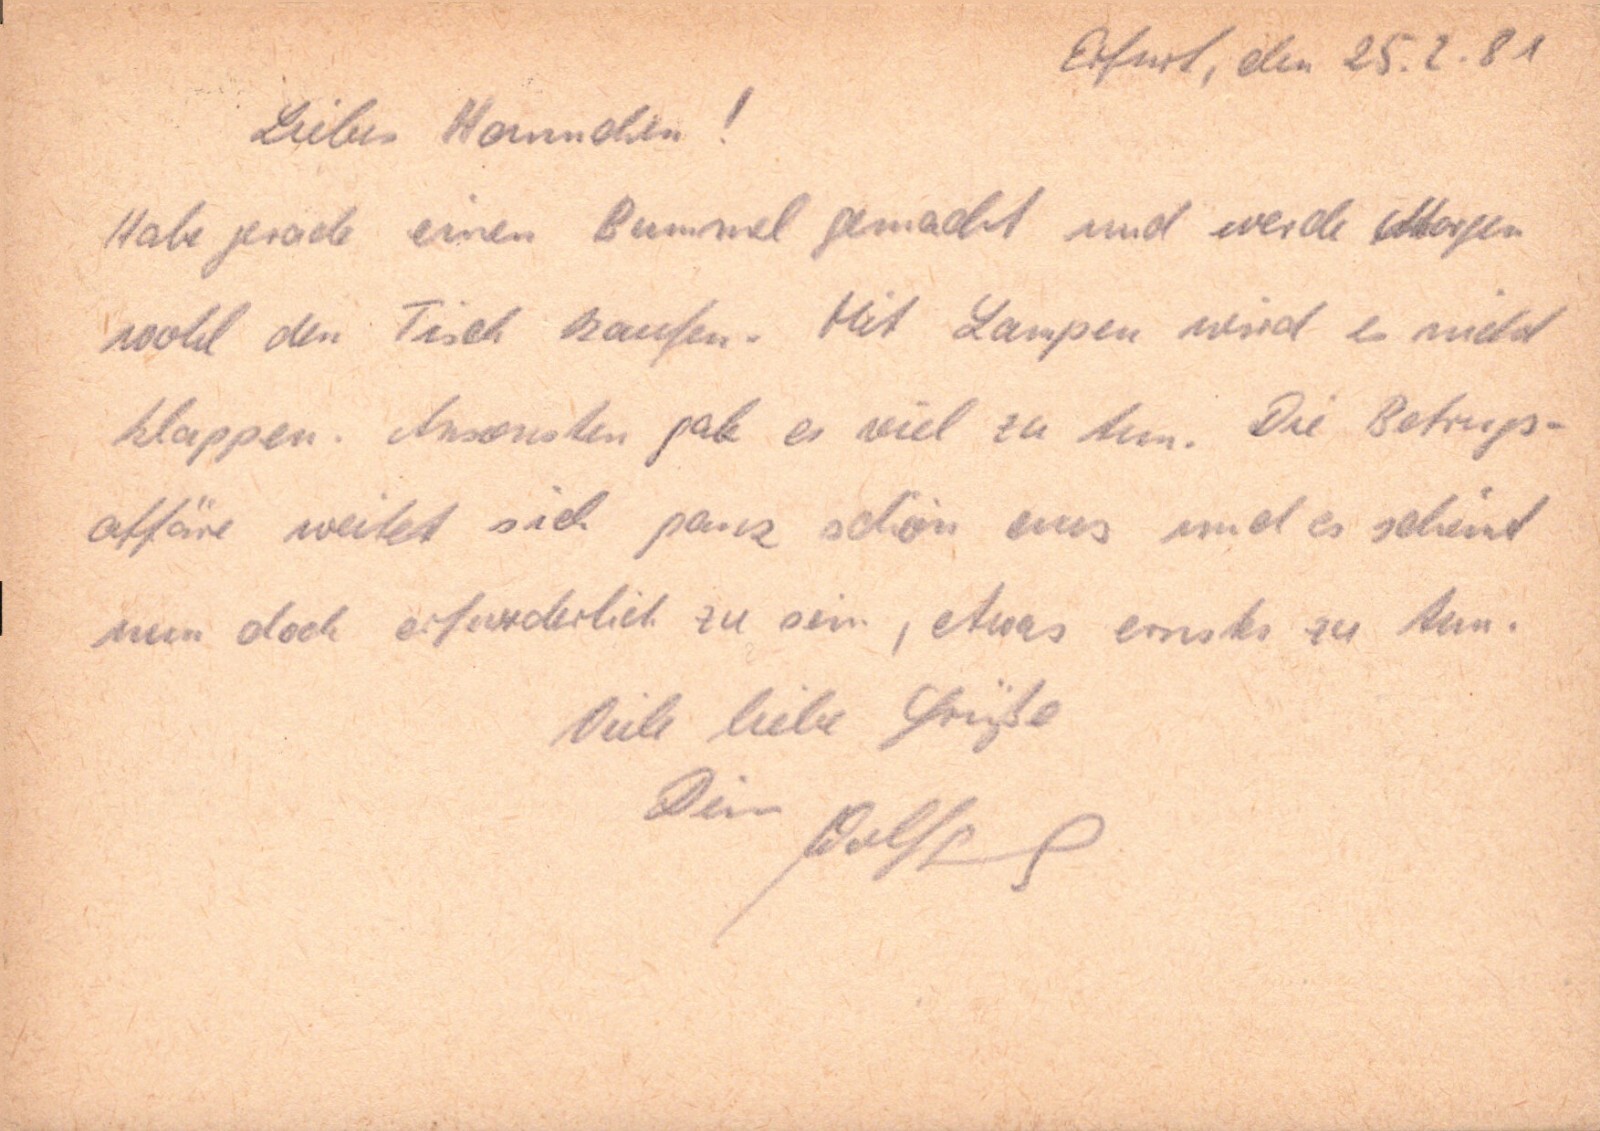 Erfurt, den 25.2.81
Liebes Hannchen!
Habe gerade einen Bummel gemacht und werde Morgen
wohl den Tisch kaufen. Mit Lampen wird es nicht
klappen. Ansonsten gab es viel zu tun. Die Betrugs-
affäre weitet sich ganz schön aus und es scheint
nun doch erforderlich zu sein, etwas ernstes zu tun.
Viele liebe Grüße
Dein